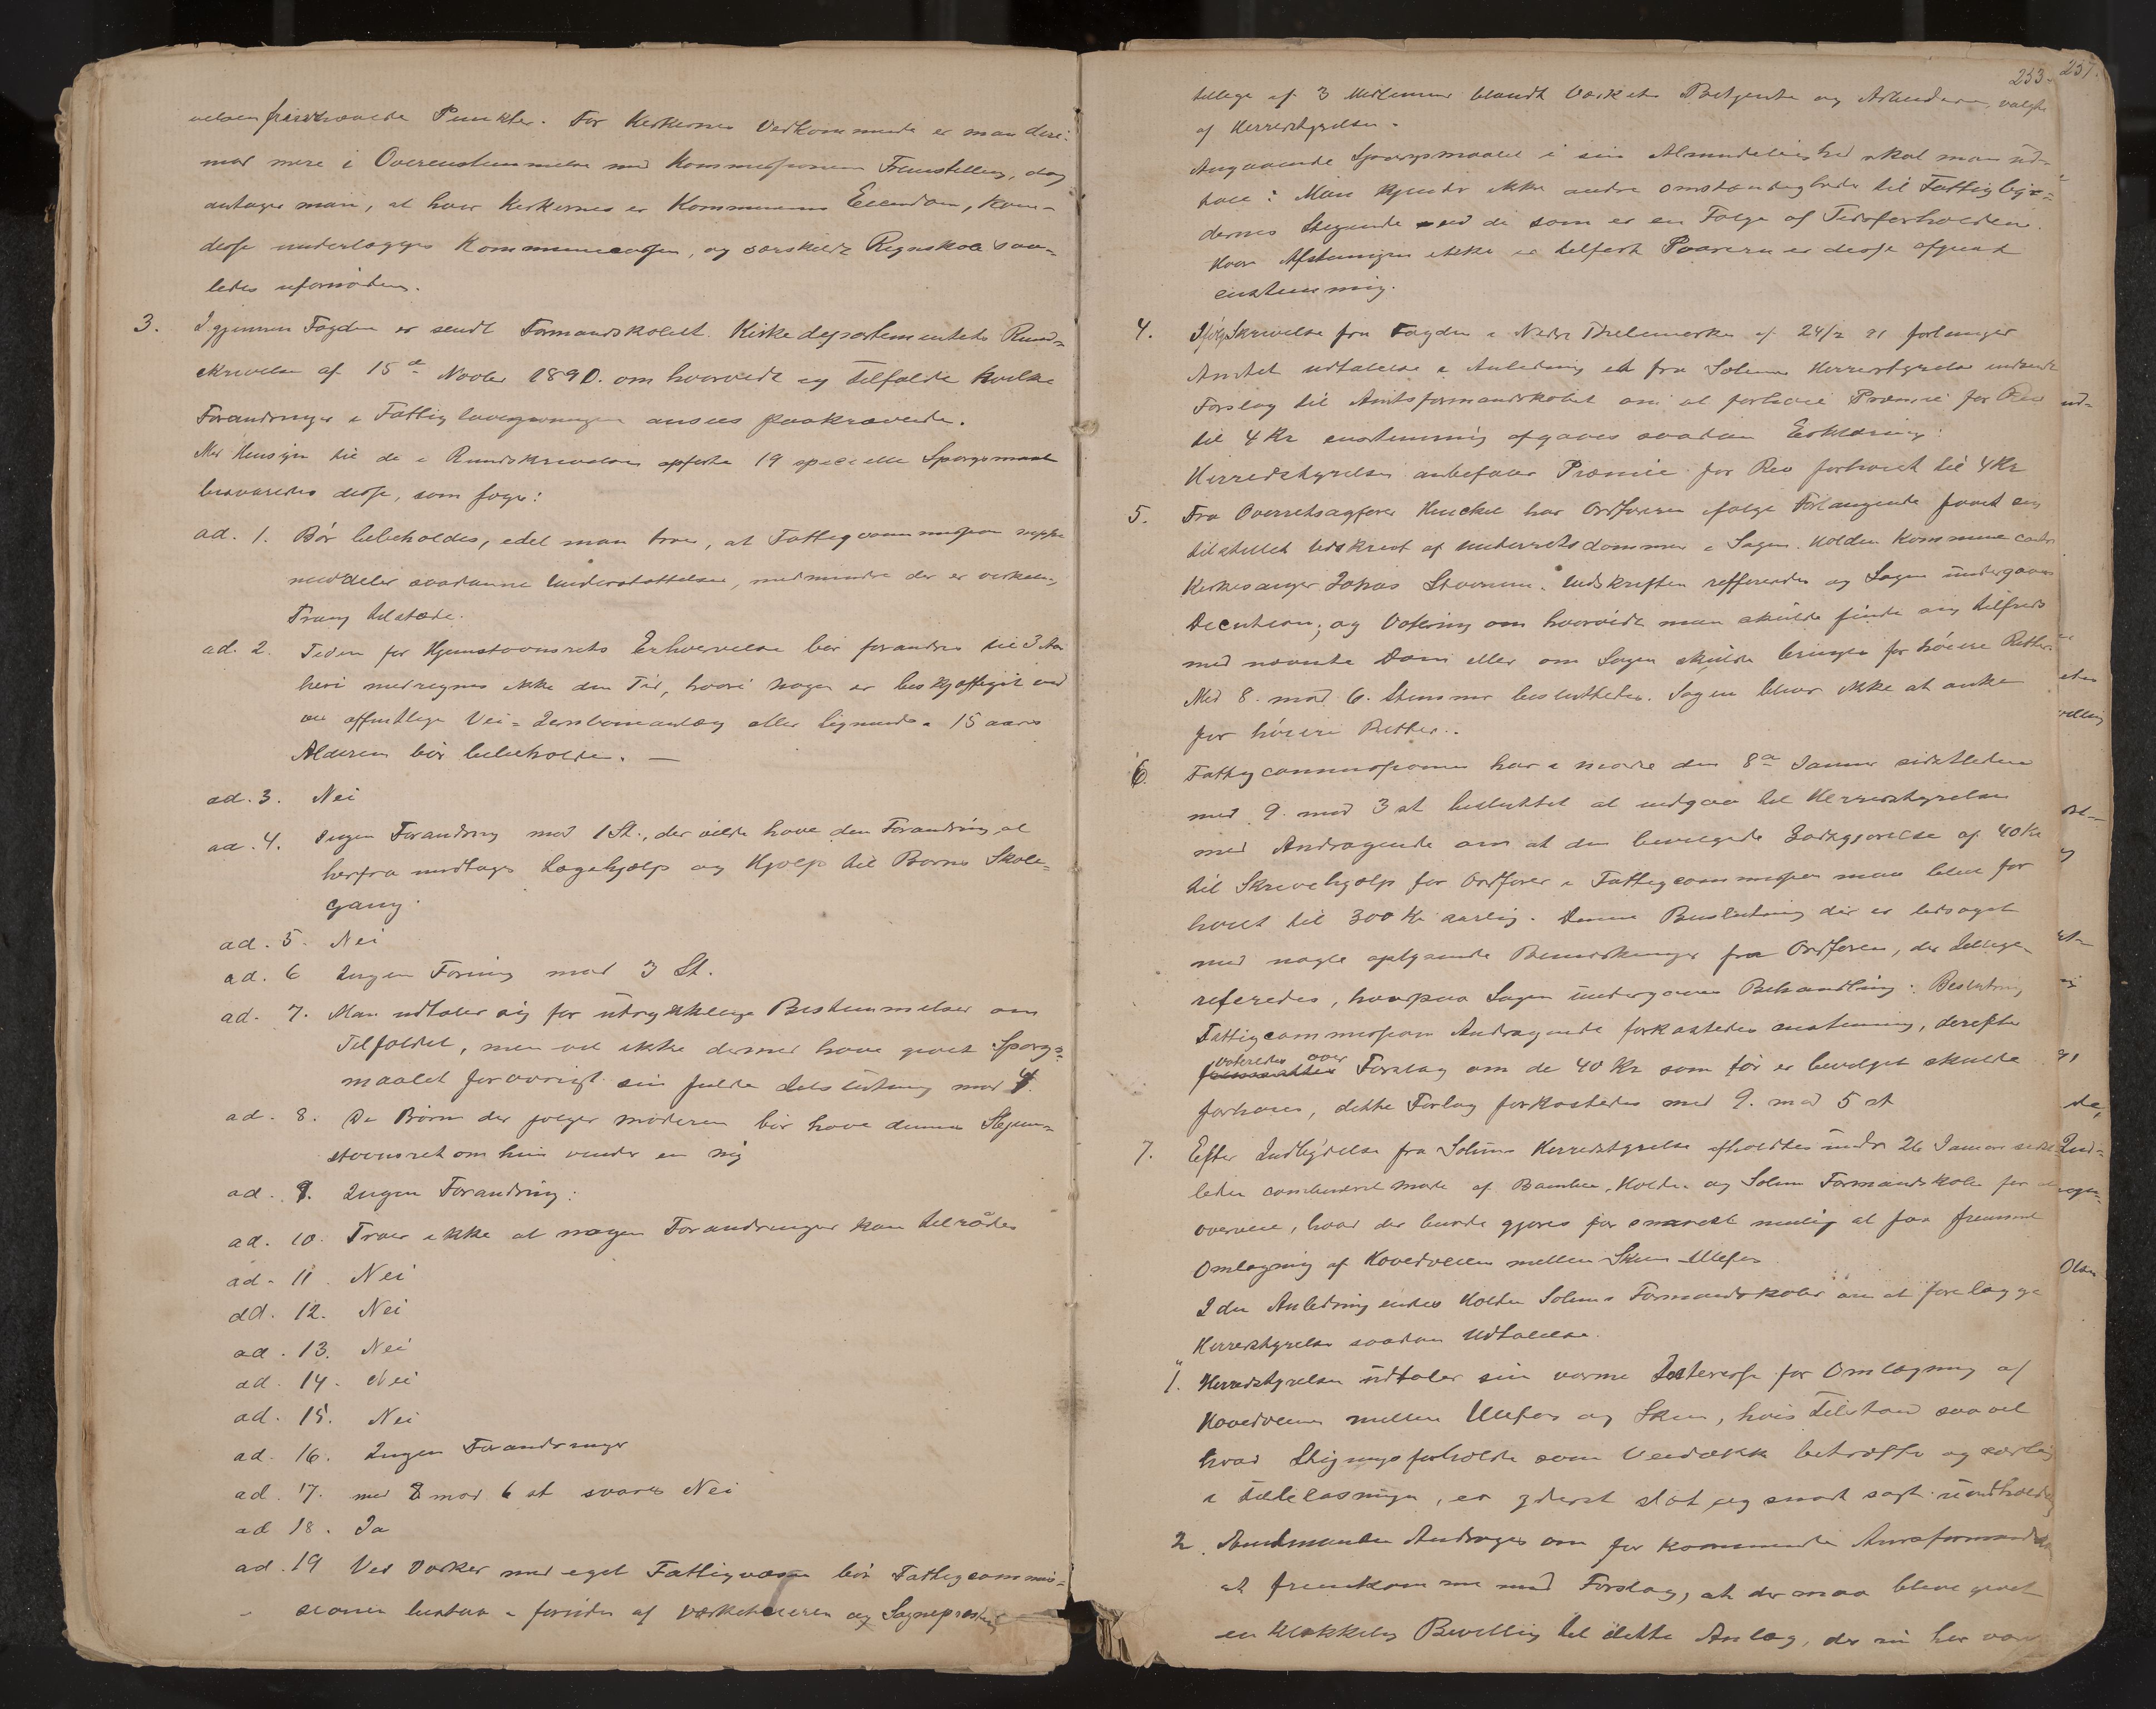 fremhævede Punkter. For Kirkernes Vedkommende er man deri-
mod mere i Overensstemmelse med Kommissionens Fremstilling, dog
antager man, at hvor Kirkernes er Kommunens Eiendom, kan
disse underlægges Kommunecassen, og særskildt Regnskab saa-
ledes ufornöden.
3. Igjennem Fogden er sendt Formandskabet Kirkedepartementets Rund-
skrivelse af 15de Novbr 1890. om hvorvidt og Tilfælde hvilke
Forandringer i Fattiglovgivningen ansees paakrævende.
Med Hensyn til de i Rundskrivelsen opførte 19 specielle Spørgsmaal
besvaredes disse, som følger:
ad. 1. Bör bibeholdes, idet man tror, at Fattigcommission neppe
meddeler saadanne Understøttelser, medmindre der er virkelig
Trang tilstæde.
ad. 2. Tiden for Hjemstavnsrets Erhvervelse bör forandres til 3 Aar
heri medregnes ikke den Tid, hvori nogen er beskjæftiget ved
offentlige Vei- Jernbaneanlæg eller lignende. 15 aars
Alderen bör bibeholdes. —
ad. 3. Nei
ad. 4. Ingen Forandring mod 1 St., der vilde have den Forandring at
herfra undtages Lægehjælp og Hjælp til Børns Skole-
gang.
ad. 5. Nei
ad. 6 Ingen mod 3 St.
ad. 7. Man udtaler sig for udtrykkelige Bestemmelser om
Tilfældet, men vil ikke dermed have givet Spørgs-
maalet forøvrigt sin fulde mod 4.
ad. 8. De Börn der følger moderen bör have dennes Hjem-
stavnsret om hun vender en sig
ad. 9. Ingen Forandring:
ad. 10. Troer ikke at nogen Forandringer kan tilrådes
ad. 11. Nei
ad. 12. Nei
ad. 13. Nei
ad. 14. Nei
ad. 15. Nei
ad. 16. Ingen Forandringer
ad. 17. med 8 mod 6 st svares Nei
ad 18. Ja
ad. 19 Ved Værker med eget Fattigvæsen bör Fattigcommis-
sionen bestaa foruden af Værkets eieren og Sognepræsten
253. 257.
tillige af 3 Medlemmer blandt Værkets Betjente og Arbeidere, valgte
af Herredstyrelsen.
Angaaende Spørgsmaalet i sin Almindelighed skal man ud-
tale: Man kjender ikke andre omstændigheder til Fattigbyr-
dernes Stigende end de som er en Følge af Tidsforholdene.
Hvor Afstemningen ikke er tilført Svarene er disse afgivet
enstemmig.
4. Ifølg Skrivelse fra Fogden i Nedre Thelemarken af 24/2 91 forlanger
Amtet udtalelse i Anledning et fra Solum Herredstyrelse indsendt
Forslag til Amtsformandskabet om at forhöie Præmie for Rev
til 4 Kr enstemmig afgaves saadan Erklæring:
Herredstyrelsen anbefaler Præmie for Rev forhöiet til 4 Kr
5. Fra Overretsagfører Henckel har Ordføreren ifølge Forlangende faaet sig
tilstillet Udskrivt af Underretsdommen i Sagen. Holden Kommune contra
Kirkesanger Johas Stavnum. Udskriften reffereredes og Sagen undergaves
Discution; og Votering om hvorvidt man skulde finde sig tilfreds
med nævnte Dom eller om Sagen skulde bringes for höiere Retter.
Med 8. mod 6. Stemmer besluttedes. Sagen bliver ikke at anke
for höiere Retter.
6 Fattigcommissionen har i møde den 8de Januar sidstleden
med 9. mod 3 st besluttet at indgaa til Herredstyrelsen
med Andragende om at den bevilgede Godtgjørelse af 40 Kr
til Skrivehjælp for Ordfører i Fattigcommission maa blive for
höiet til 300 Kr aarlig. Denne Beslutning der er ledsaget
med nogle oplysende Bemærkninger fra Ordføren, der tillige
referedes, hvorpaa Sagen undergaves Behandling: Beslutning
Fattigcommission Andragende forkastedes enstemmig, derefter
voteredes over Forslag om de 40 Kr som før er bevilget skulde
forhöies, dette Forlag forkastedes med 9. mod 5 st
7. Efter Indbydelse fra Solums Herredstyrelse afholdtes under 26 Januar sidst
leden combineret møde af Bamble, Holden og Solum Formandskaber for at
overveie, hvad der burde gjøres for snarest mulig at faa fremmet
Omlægning af Hovedveien mellem Skien Ulefos
I den Anledning Holden Solums Formandskaber om at forelægge
Herredstyrelsen saadan Udtalelse.
1. Herredstyrelsen udtaler sin varme Interesse for Omlægning af
Hovedveien mellem Ulefos og Skien, hvis Tilstand saavel
hvad Stigningsforholde som Veidække betræffe og særlig
i Teleløsningen, er yderst slet og snart sagt uundholdelig
2. Amtmanden Andrages om for kommende Amtsformandskab
at fremkomme med Forslag, at der maa blive givet
en klækkelig Bevilling til dette Anlæg, der